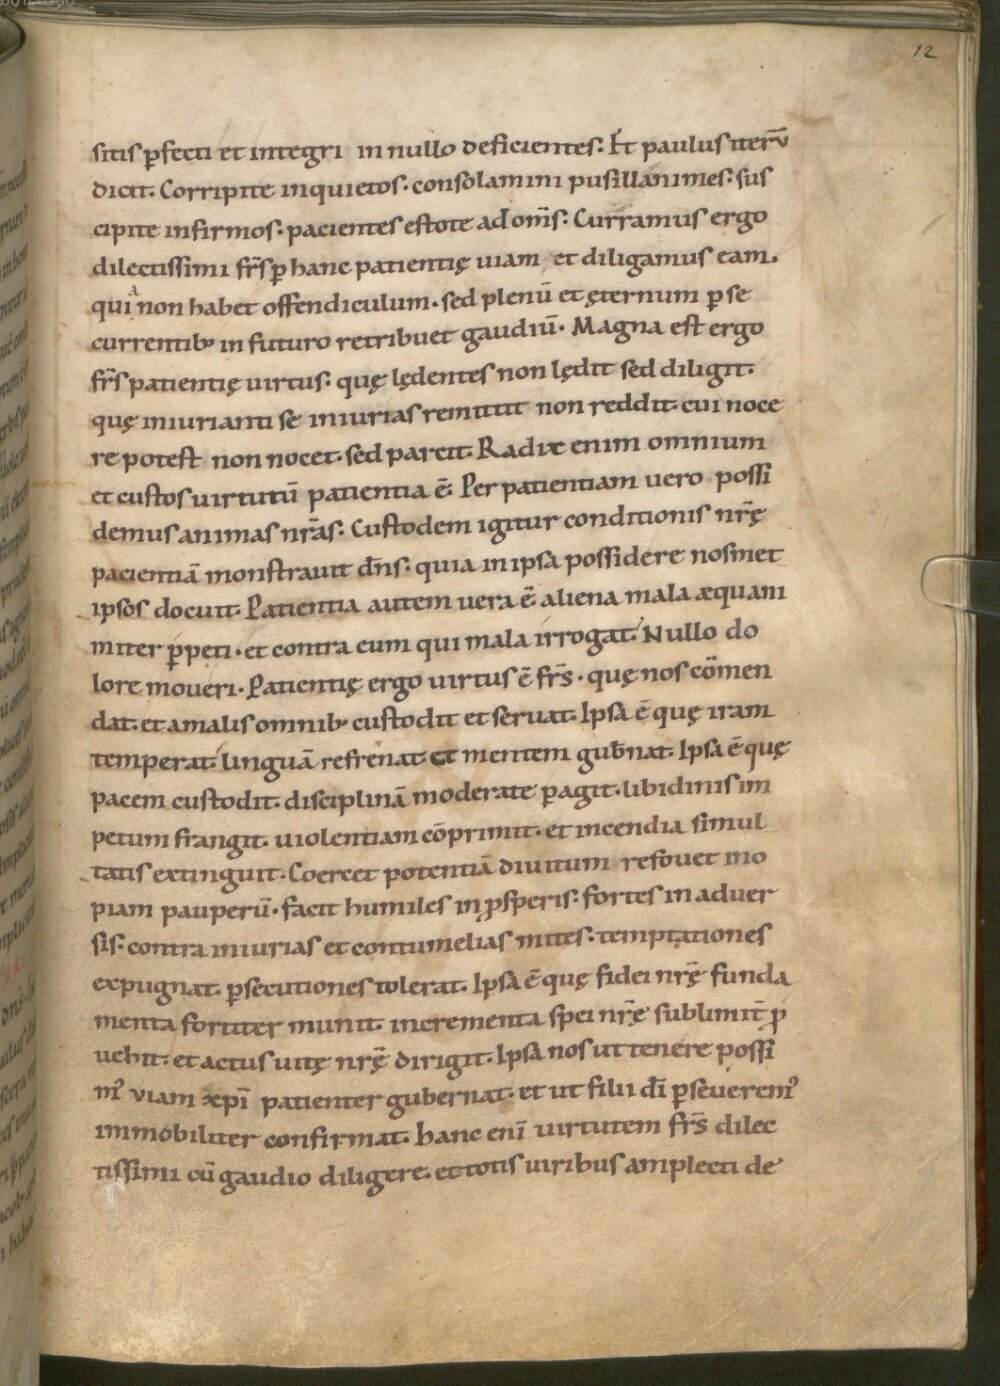 12
sitis ꝑfecti et integri in nullo deficientes. Et paulus iterū
dicit. Corripite inquietos. consolamini pusillanimes. sus
cipite infirmos. pacientes estote ad om̄s. Curramus ergo
dilectissimi fr̄s ꝑ hanc patientię uiam et diligamus eam.
quia non habet offendiculum. sed plenū et ęternum ꝑ se
currentibꝫ in futuro retribuet gaudiū. Magna est ergo
fr̄s patientię uirtus. quę lędentes non lędit sed diligit.
quę iniurianti se iniurias remittit non reddit. cui noce
re potest non nocet. sed parcit. Radix enim omnium
et custos uirtutū patientia ē. Per patientiam uero possi
demus animas nr̄as. Custodem igitur conditionis nr̄ę
pacientiā monstrauit dn̄s. quia in ipsa possidere nosmet
ipsos docuit. Patientia autem uera ē aliena mala æquani
miter ꝑpeti. et contra eum qui mala irrogat. Nullo do
lore moueri. Patientię ergo uirtus ē fr̄s. quę nos cōmen
dat. et a malis omnibꝫ custodit et seruat. Ipsa ē quę iram
temperat. linguā refrenat et mentem gub̄nat. Ipsa ē quę
pacem custodit. disciplinā moderate ꝑagit. libidinis im
petum frangit. uiolentiam cōprimit. et incendia simul
tatis extinguit. Coercet potentiā diuitum refouet ino
piam pauperū. facit humiles in ꝓsperis. fortes in aduer
sis. contra iniurias et contumelias mites. temptationes
expugnat. ꝑsecutiones tolerat. Ipsa ē quę fidei nr̄ę funda
menta fortiter munit. incrementa spei nr̄ę sublimit̄ ꝓ
uehit. et actus uitę nr̄ę dirigit. Ipsa nos ut tenere possi
mꝰ viam xp̄i patienter gubernat. et ut filii dī ꝑseueremꝰ
immobiliter confirmat. hanc enī uirtutem fr̄s dilec
tissimi cū gaudio diligere. et totis uiribus amplecti de